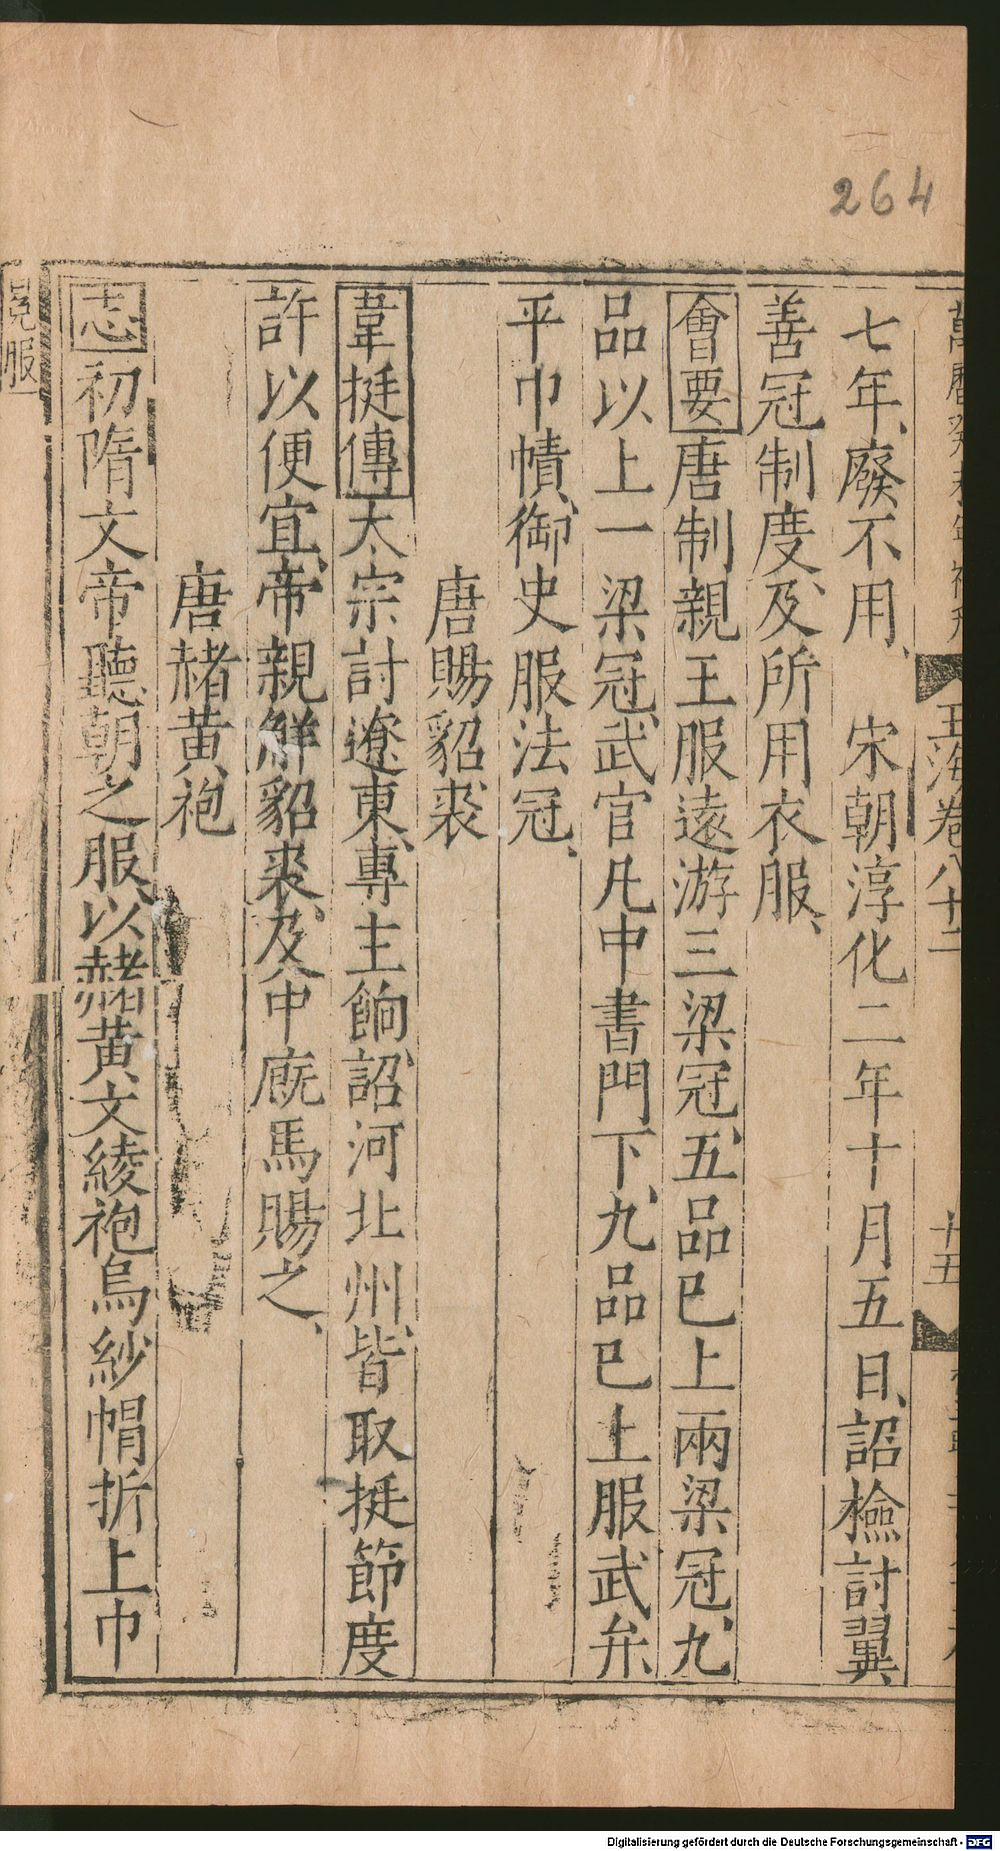 264
玉海卷八十二
十五
七年、廢不用、　宋朝淳化二年十月五日、詔檢討翼
善冠制度、及所用衣服、
會要唐制親王服遠游三梁冠、五品已上兩梁冠、九
品以上一梁冠、武官凡中書門下、九品已上服武弁、
平巾幘、御史服法冠、
唐賜貂裘
韋挺傳太宗討遼東、專主餉、詔河北州、皆取挺節度
許以便宜、帝親解貂裘、及中廐馬賜之、
唐赭黄袍
志初隋文帝聽朝之服、以赭黄文綾袍烏紗帽折上巾
冕服
Digitalisierung gefördert durch die Deutsche Forschungsgemeinschaft - DFG